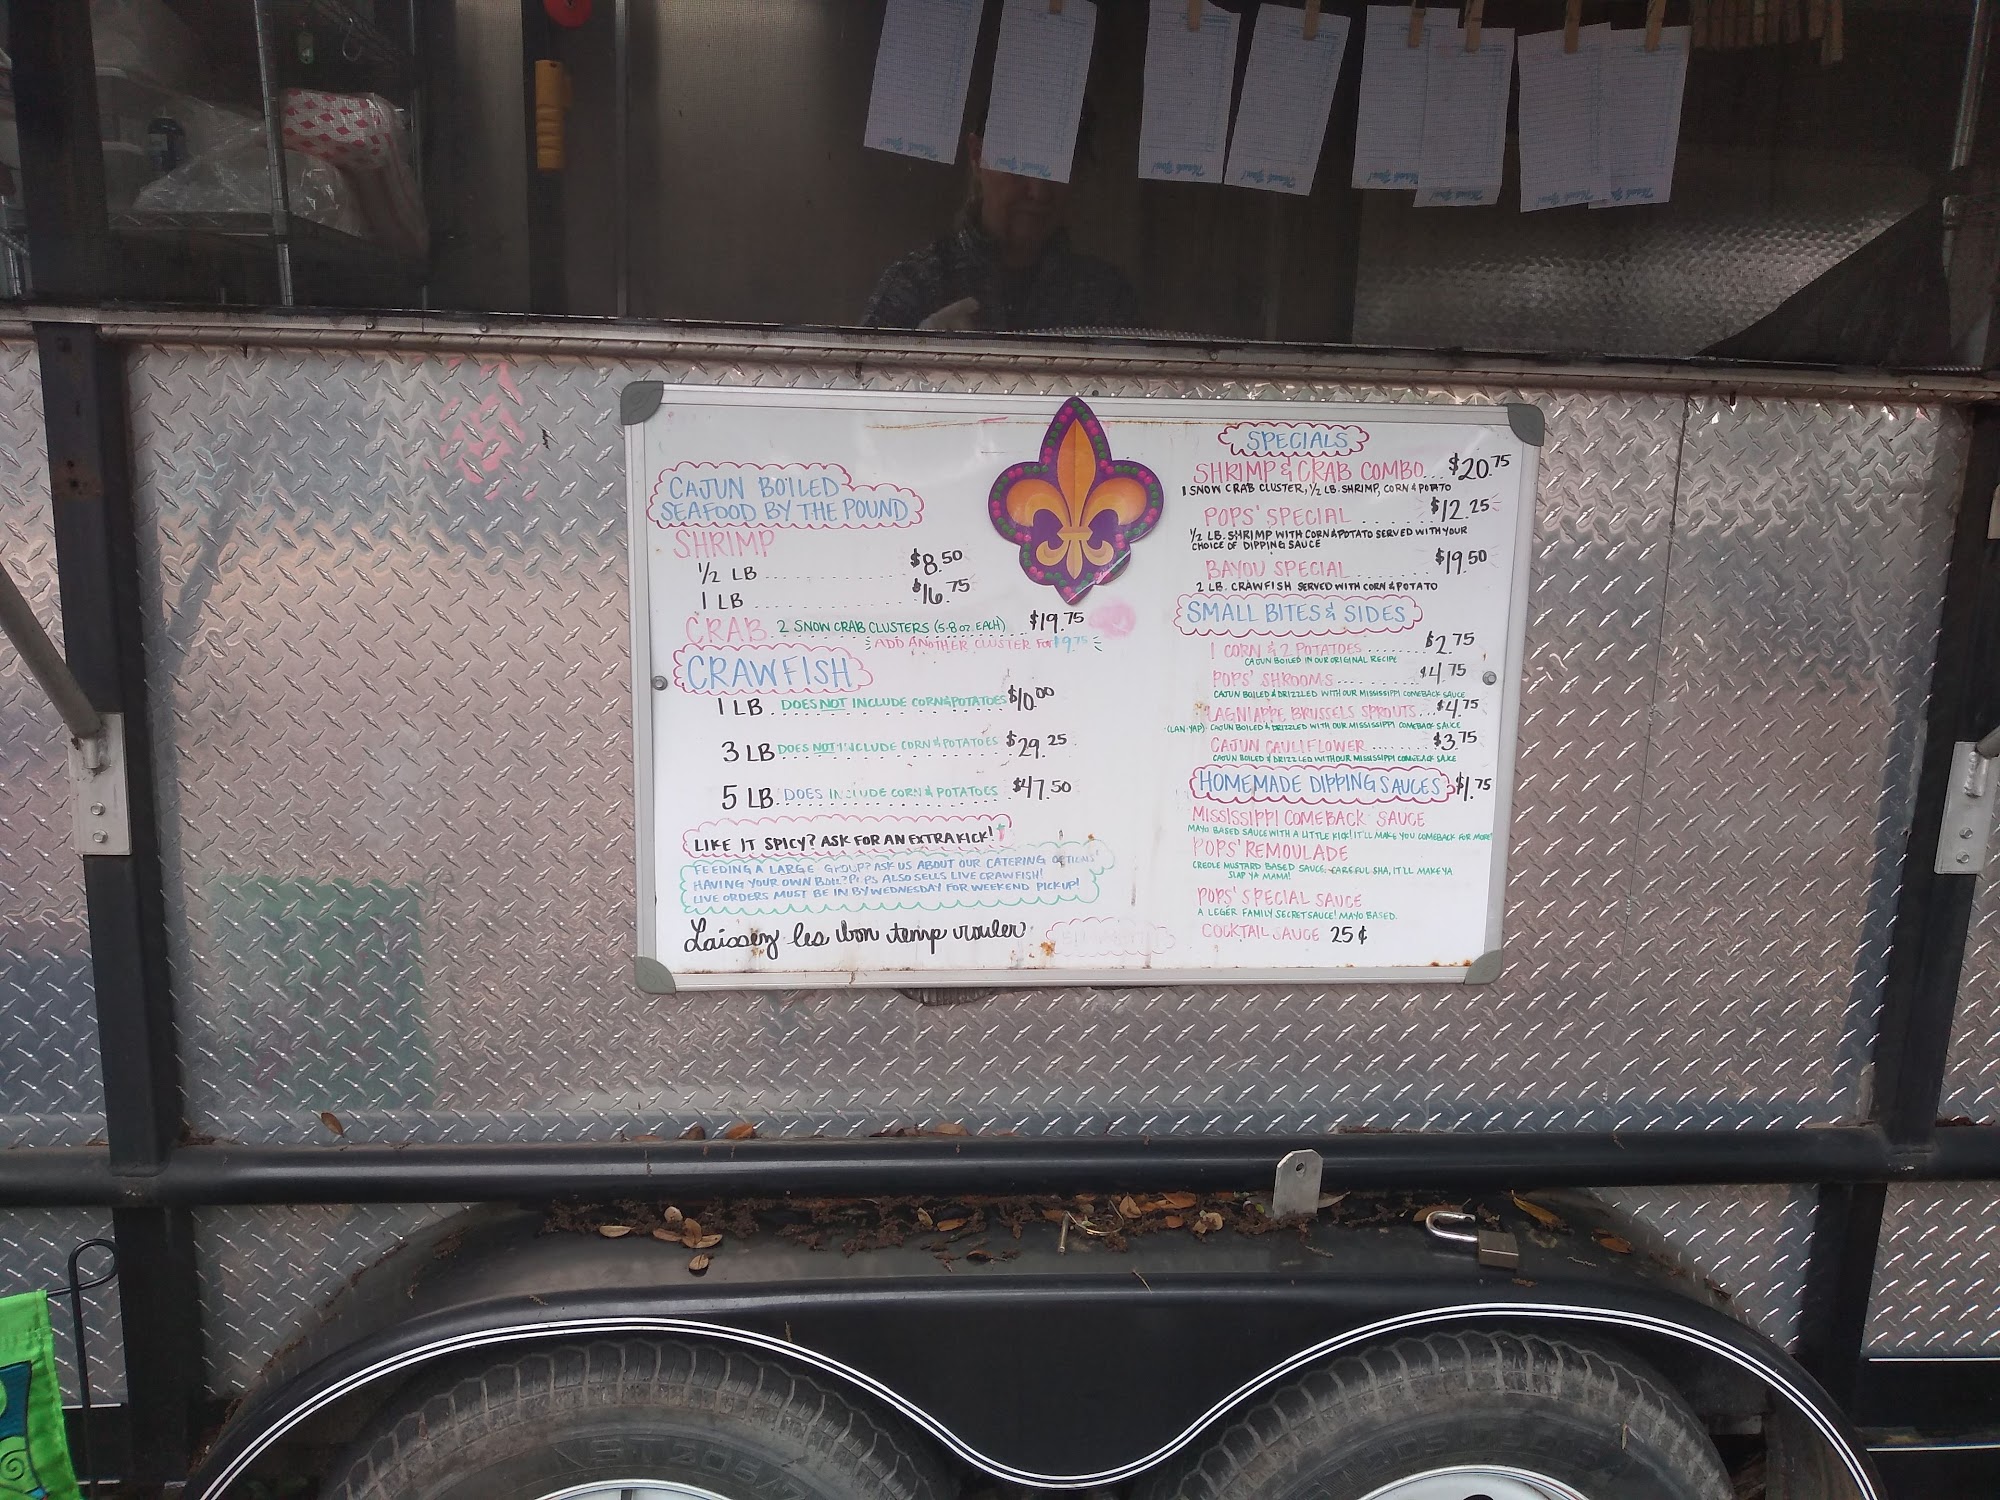 CAJUN BOILED
SEAFOOD BY THE POUND
SHRIMP
1/2 LB ............... $8.50
1 LB ............... $16.75
CRAB. 2 SNOW CRAB CLUSTERS (5-8 oz. EACH) ... $19.75
ADD ANOTHER CLUSTER FOR $9.75
CRAWFISH
1 LB. DOES NOT INCLUDE CORN & POTATOES $10.00
3 LB DOES NOT INCLUDE CORN & POTATOES $29.25
5 LB. DOES INCLUDE CORN & POTATOES $47.50
LIKE IT SPICY? ASK FOR AN EXTRA KICK!
FEEDING A LARGE GROUP? ASK US ABOUT OUR CATERING OPTIONS!
HAVING YOUR OWN BOIL? POPS ALSO SELLS LIVE CRAWFISH!
LIVE ORDERS MUST BE IN BY WEDNESDAY FOR WEEKEND PICKUP!
Laissez les bon temp rouler
SPECIALS
SHRIMP & CRAB COMBO... $20.75
1 SNOW CRAB CLUSTER, 1/2 LB. SHRIMP, CORN & POTATO
POPS' SPECIAL ........ $12.25
1/2 LB. SHRIMP WITH CORN & POTATO SERVED WITH YOUR
CHOICE OF DIPPING SAUCE
BAYOU SPECIAL ........ $19.50
2 LB. CRAWFISH SERVED WITH CORN & POTATO
SMALL BITES & SIDES
1 CORN & 2 POTATOES ....... $2.75
CAJUN BOILED IN OUR ORIGINAL RECIPE
POPS' SHROOMS ......... $4.75
CAJUN BOILED & DRIZZLED WITH OUR MISSISSIPPI COMEBACK SAUCE
LAGNIAPPE BRUSSELS SPROUTS... $4.75
(LAN-YAP) CAJUN BOILED & DRIZZLED WITH OUR MISSISSIPPI COMEBACK SAUCE
CAJUN CAULIFLOWER ........ $3.75
CAJUN BOILED & DRIZZLED WITH OUR MISSISSIPPI COMEBACK SAUCE
HOMEMADE DIPPING SAUCES $1.75
MISSISSIPPI COMEBACK SAUCE
MAYO BASED SAUCE WITH A LITTLE KICK! IT'LL MAKE YOU COMEBACK FOR MORE!
POPS' REMOULADE
CREOLE MUSTARD BASED SAUCE. CAREFUL SHA, IT'LL MAKE YA
SLAP YA MAMA!
POPS' SPECIAL SAUCE
A LEGER FAMILY SECRET SAUCE! MAYO BASED.
COCKTAIL SAUCE 25¢
Thank You!
Thank You!
Thank You!
Thank You!
Thank You!
Thank You!
Thank You!
Thank You!